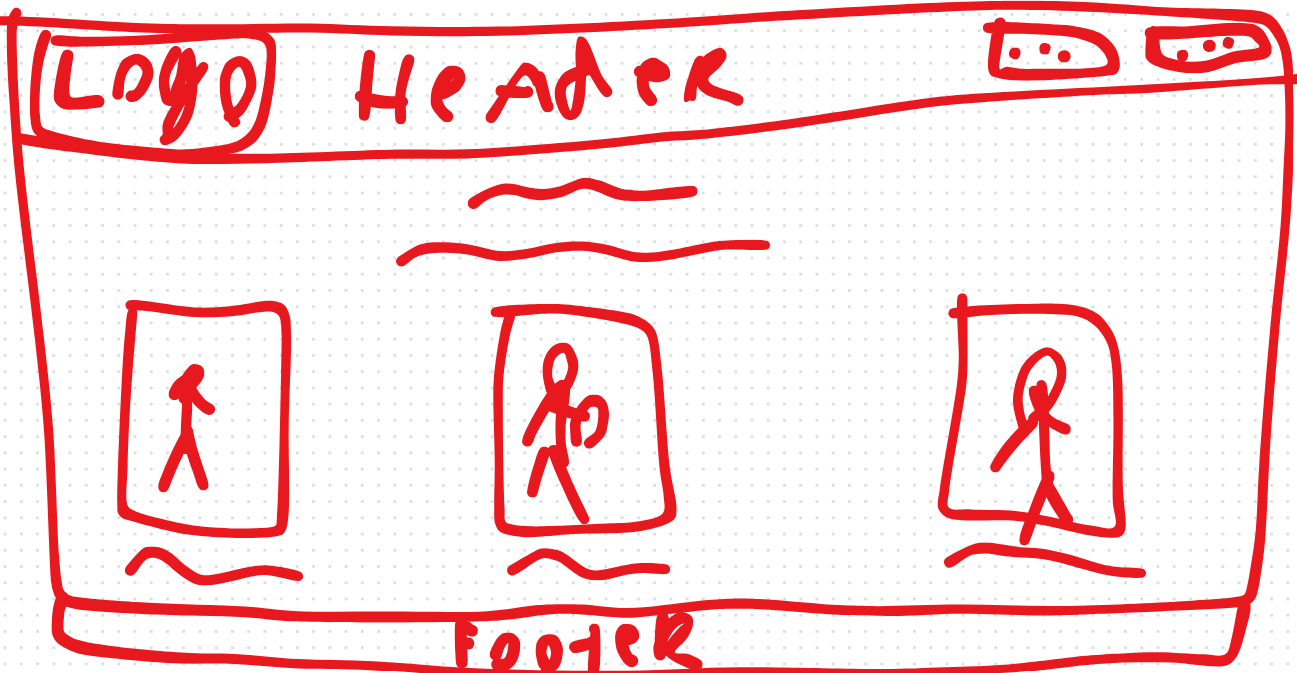 Logo Header
Footer